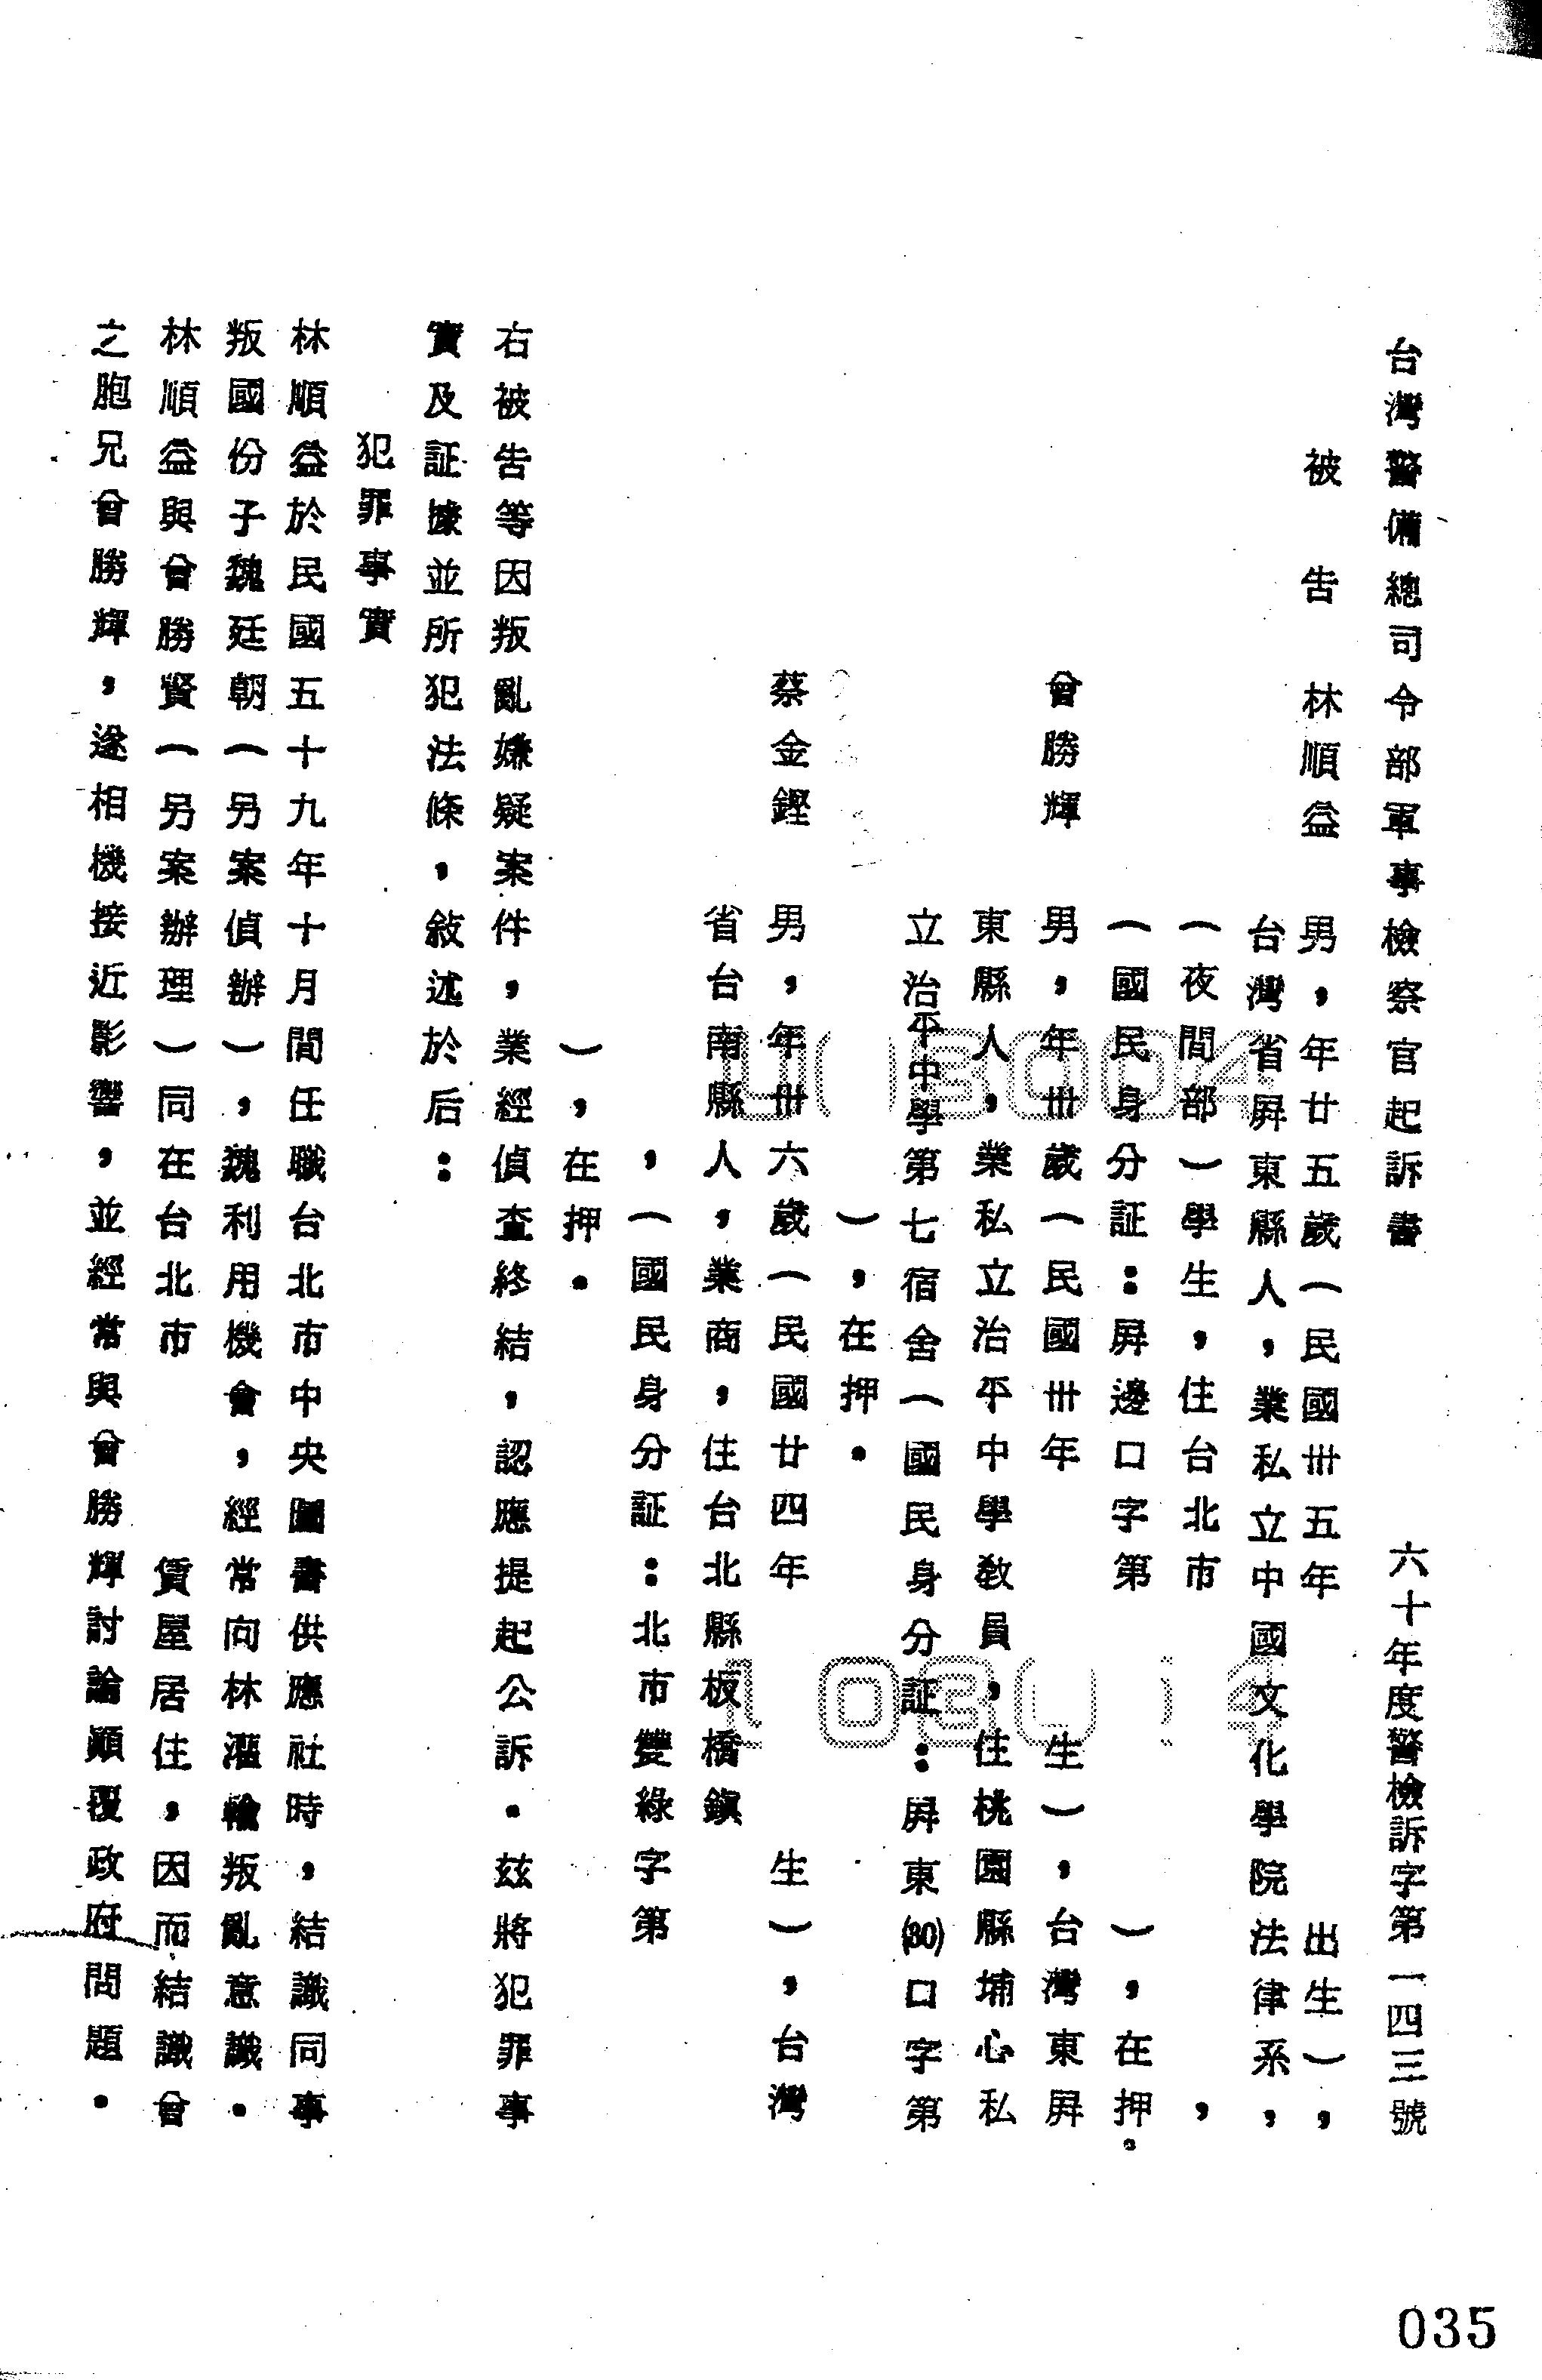 台灣警備總司令部軍事檢察官起訴書
六十年度警檢訴字第一四三號
被告 林順益 男，年廿五歲（民國卅五年 出生），
台灣省屏東縣人，業私立中國文化學院法律系，
（夜間部）學生，住台北市 ，
（國民身分証：屏邊口字第 ），在押。
曾勝輝 男，年卅歲（民國卅年 生），台灣東屏
東縣人，業私立治平中學教員，住桃園縣埔心私
立治平中學第七宿舍（國民身分証：屏東(30)口字第
），在押。
蔡金鏗 男，年卅六歲（民國廿四年 生），台灣
省台南縣人，業商，住台北縣板橋鎮
，（國民身分証：北市雙綠字第
），在押。
右被告等因叛亂嫌疑案件，業經偵查終結，認應提起公訴。玆將犯罪事
實及証據並所犯法條，敍述於后：
犯罪事實
林順益於民國五十九年十月間任職台北市中央圖書供應社時，結識同事
叛國份子魏廷朝（另案偵辦），魏利用機會，經常向林灌輸叛亂意識。
林順益與曾勝賢（另案辦理）同在台北市 賃屋居住，因而結識曾
之胞兄曾勝輝，遂相機接近影響，並經常與曾勝輝討論顚覆政府問題。
035